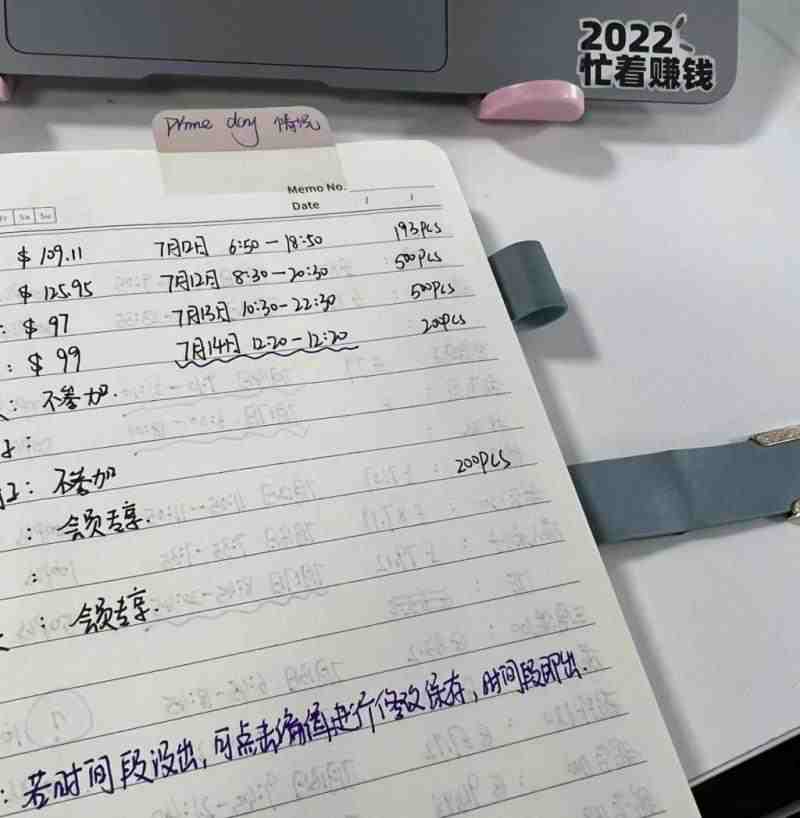 2022
忙着赚钱
Prime day 情况
Memo No.
Date / /
Fr Sa Su
$ 109.11 7月12日 6:50-18:50 193pcs
$ 125.95 7月12日 8:30-20:30 500pcs
: $ 97 7月13日 10:30-22:30 500pcs
: $ 99 7月14日 12:20-12:20 200pcs
: 不参加.
:
: 不参加 200pcs
: 会员专享.
:
: 会员专享.
: 若时间段没出,可点击编辑进行修改保存,时间段即出.